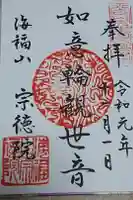 奉拝
令和元年
十一月一日
如意輪観世音
海福山
宗徳院